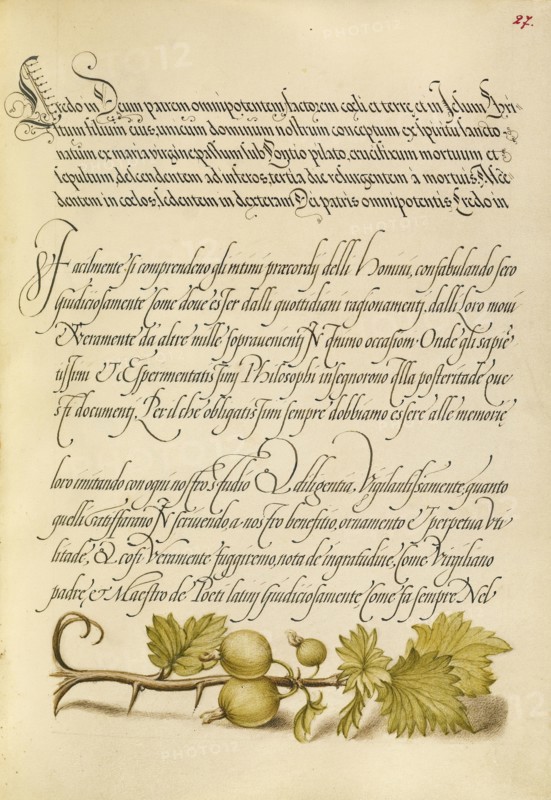 27.
Credo in Deum patrem omnipotentem, factorem cœli et terre, et in Jesum Chri
stum filium eius, unicum dominum nostrum conceptum ex spiritu sancto
natum ex maria virgine, passum sub Pontio pilato, crucifixum mortuum et
sepultum, descendentem ad inferos, tertia die resurgentem á mortuis, Ascē
dentem in cœlos, sedentem in dexteram Dei patris omnipotentis Credo in
Facilmente si comprendeno gli intimi præcordij delli Homini, confabulando seco
Giudiciosamente Come doue esser dalli quottidiani ragionamenti, dalli Loro moui
Et veramente da altre mille sopravenienti N qnuino occasiom. Onde gli sapiē
tissimi Et Espermentatissimj Philosophi insegnorono Alla posteritade que
sti documenti. Per il che obligatissim sempre dobbiamo essere alle memorie
loro imitando con ogni nostro studio Et diligentia, Vigilantissiamente, quanto
quelli N scriuendo, a nostro benefitio, ornamento Et perpetua vti
litade, Et cosi Veramente fuggiremo, nota de ingratitudine, Come Virgiliano
padre, et Maestro de Poeti latini Giudiciosamente, Come fa sempre Nel
PHOTO12